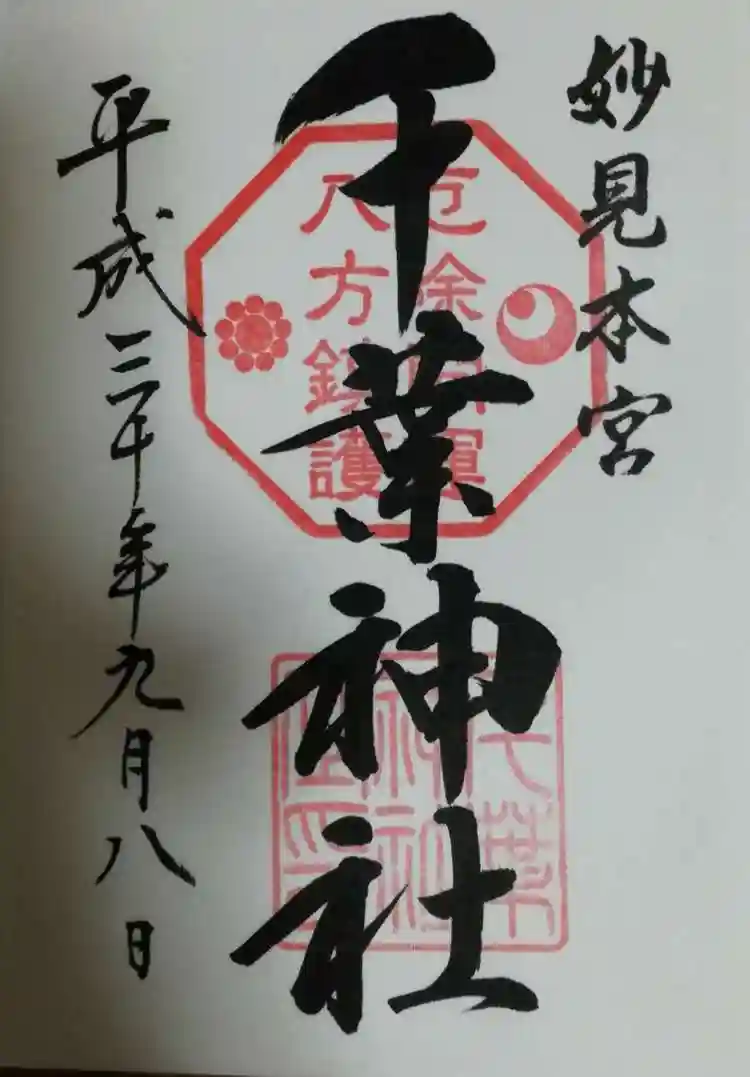 妙見本宮
千葉神社
厄除開運
八方鎮護
千葉
神社
印
平成三十年九月八日